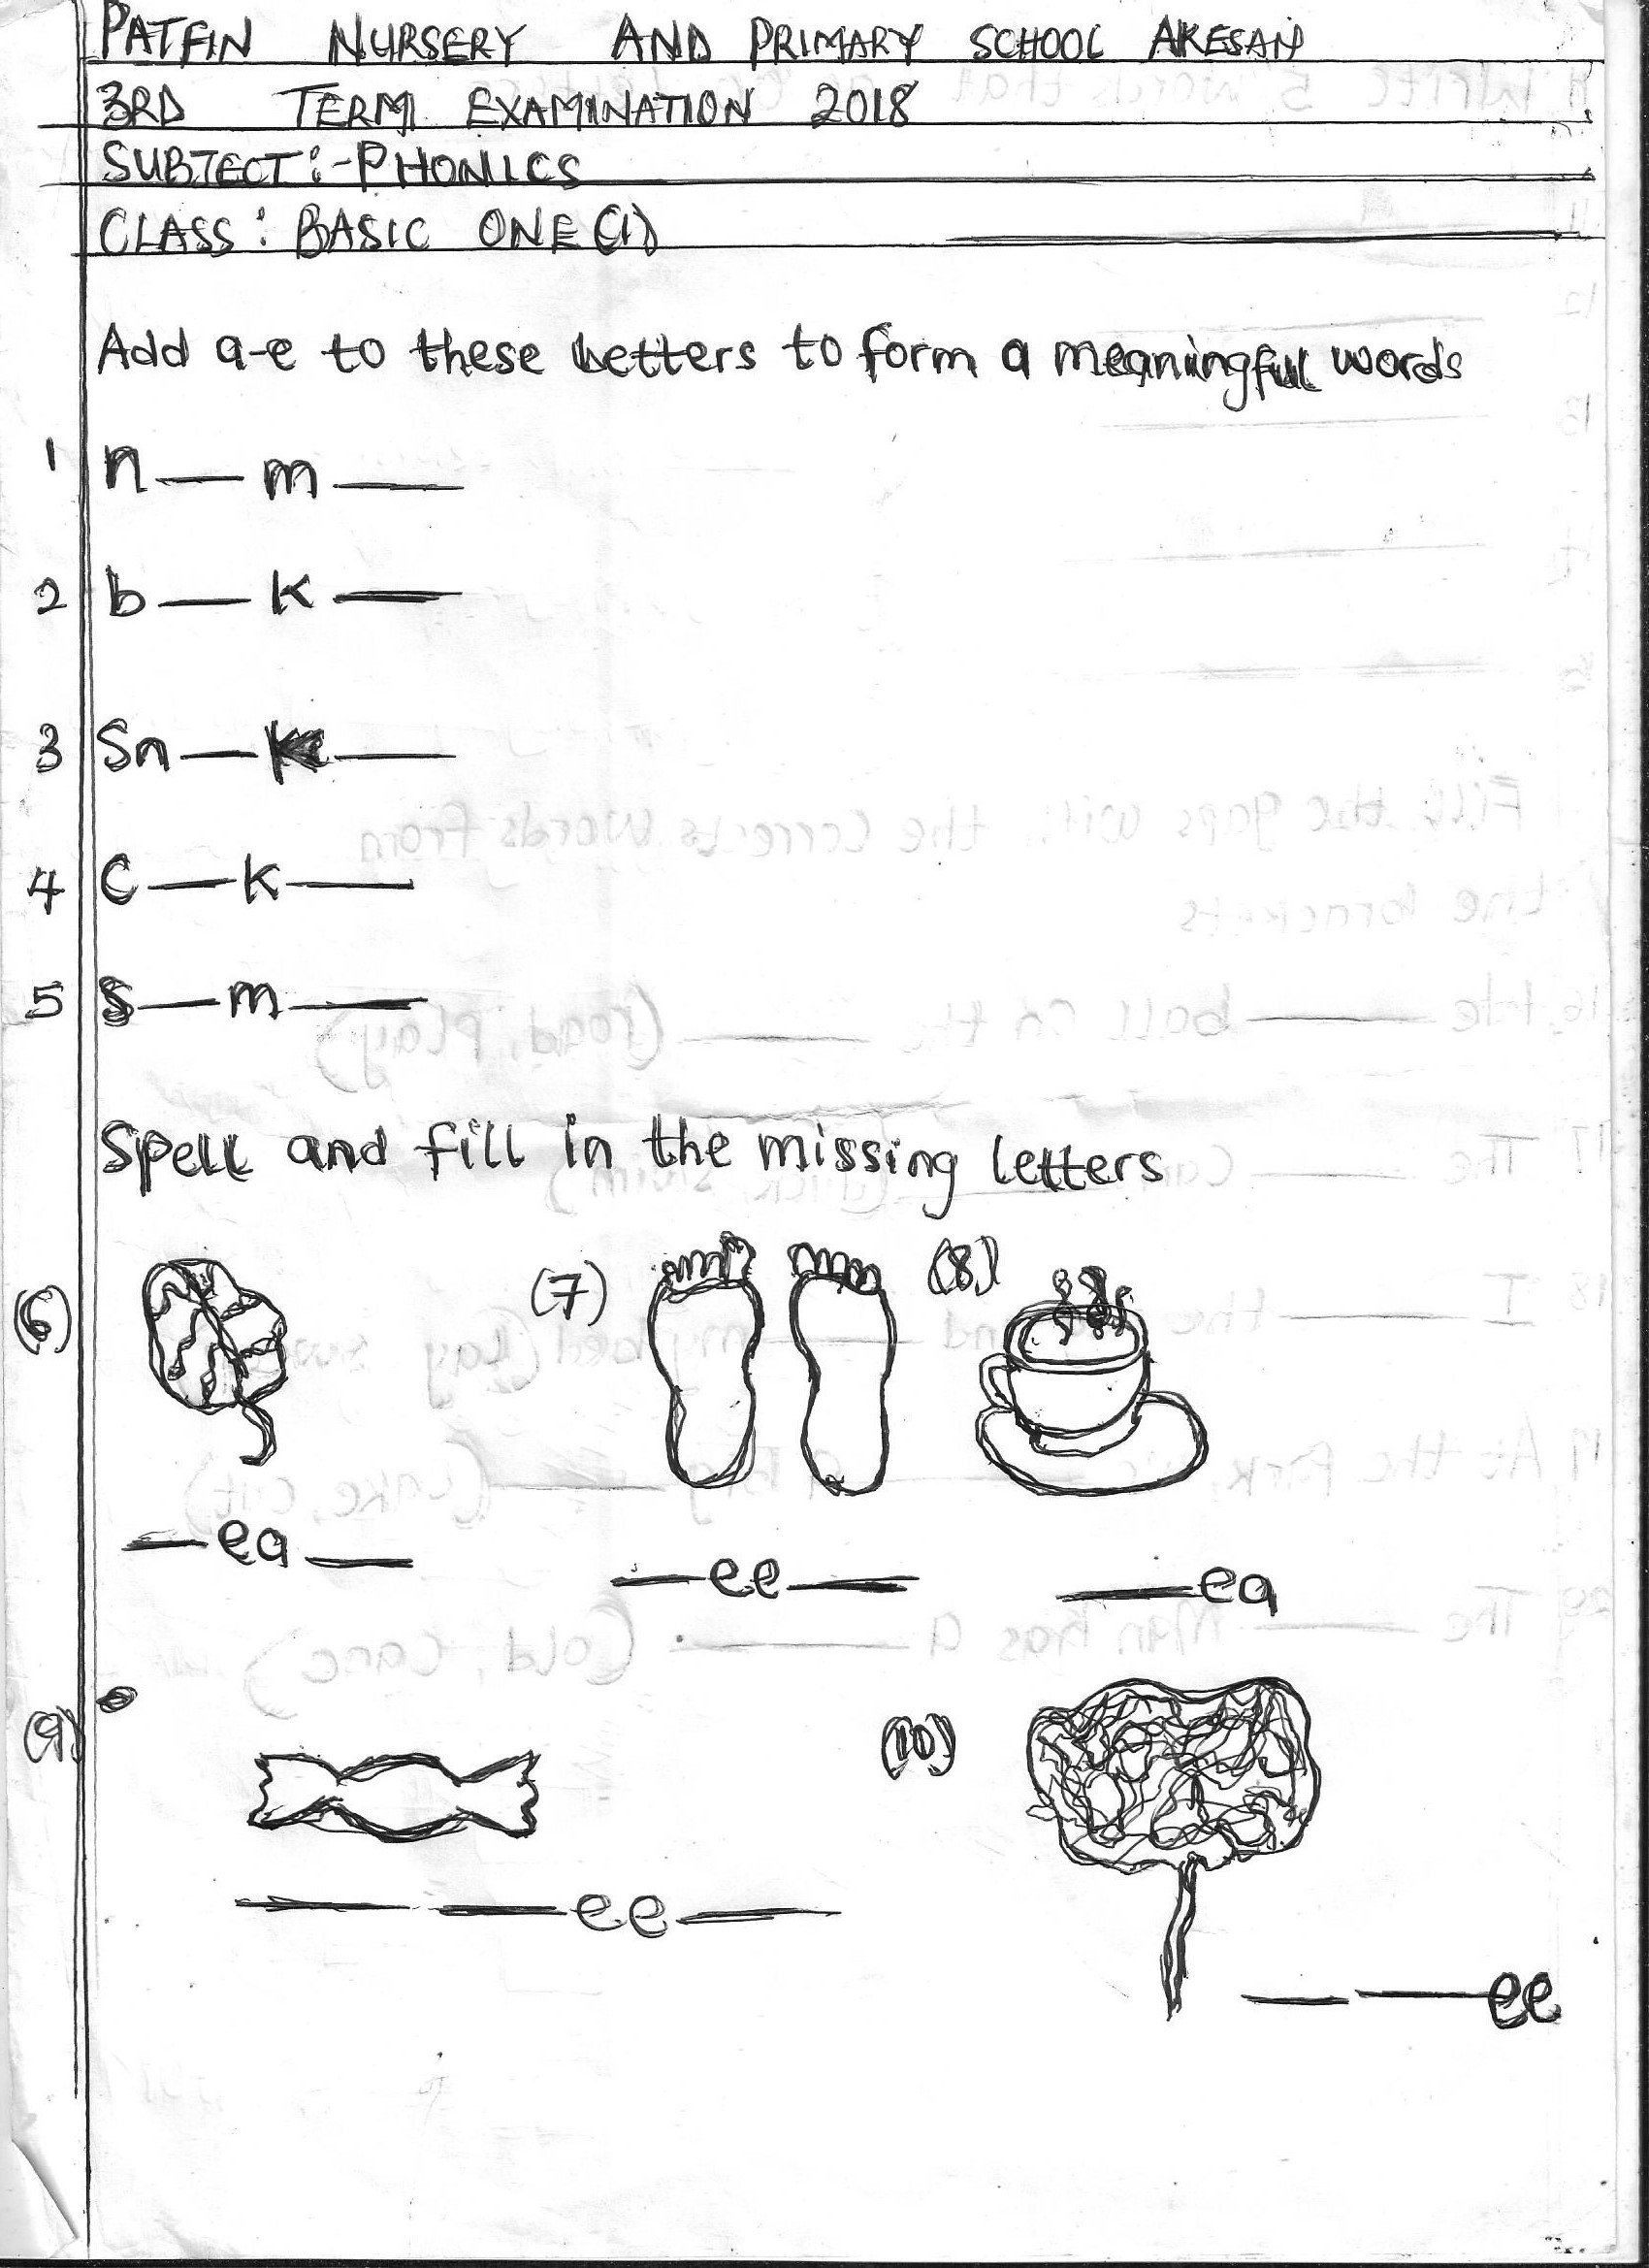 PATFIN NURSERY AND PRIMARY SCHOOL AKESAN
3RD TERM EXAMINATION 2018
SUBTECT:-PHONICS
CLASS: BASIC ONE (1)
Add a-e to these letters to form a meaningful words
1 n__m__
2 b__k__
3 Sn__k__
4 C__k__
5 S__m__
Spell and fill in the missing letters
(6) (7) (8)
__ea__ __ee__ __ea
(9) (10)
__ __ee__
__ __ee